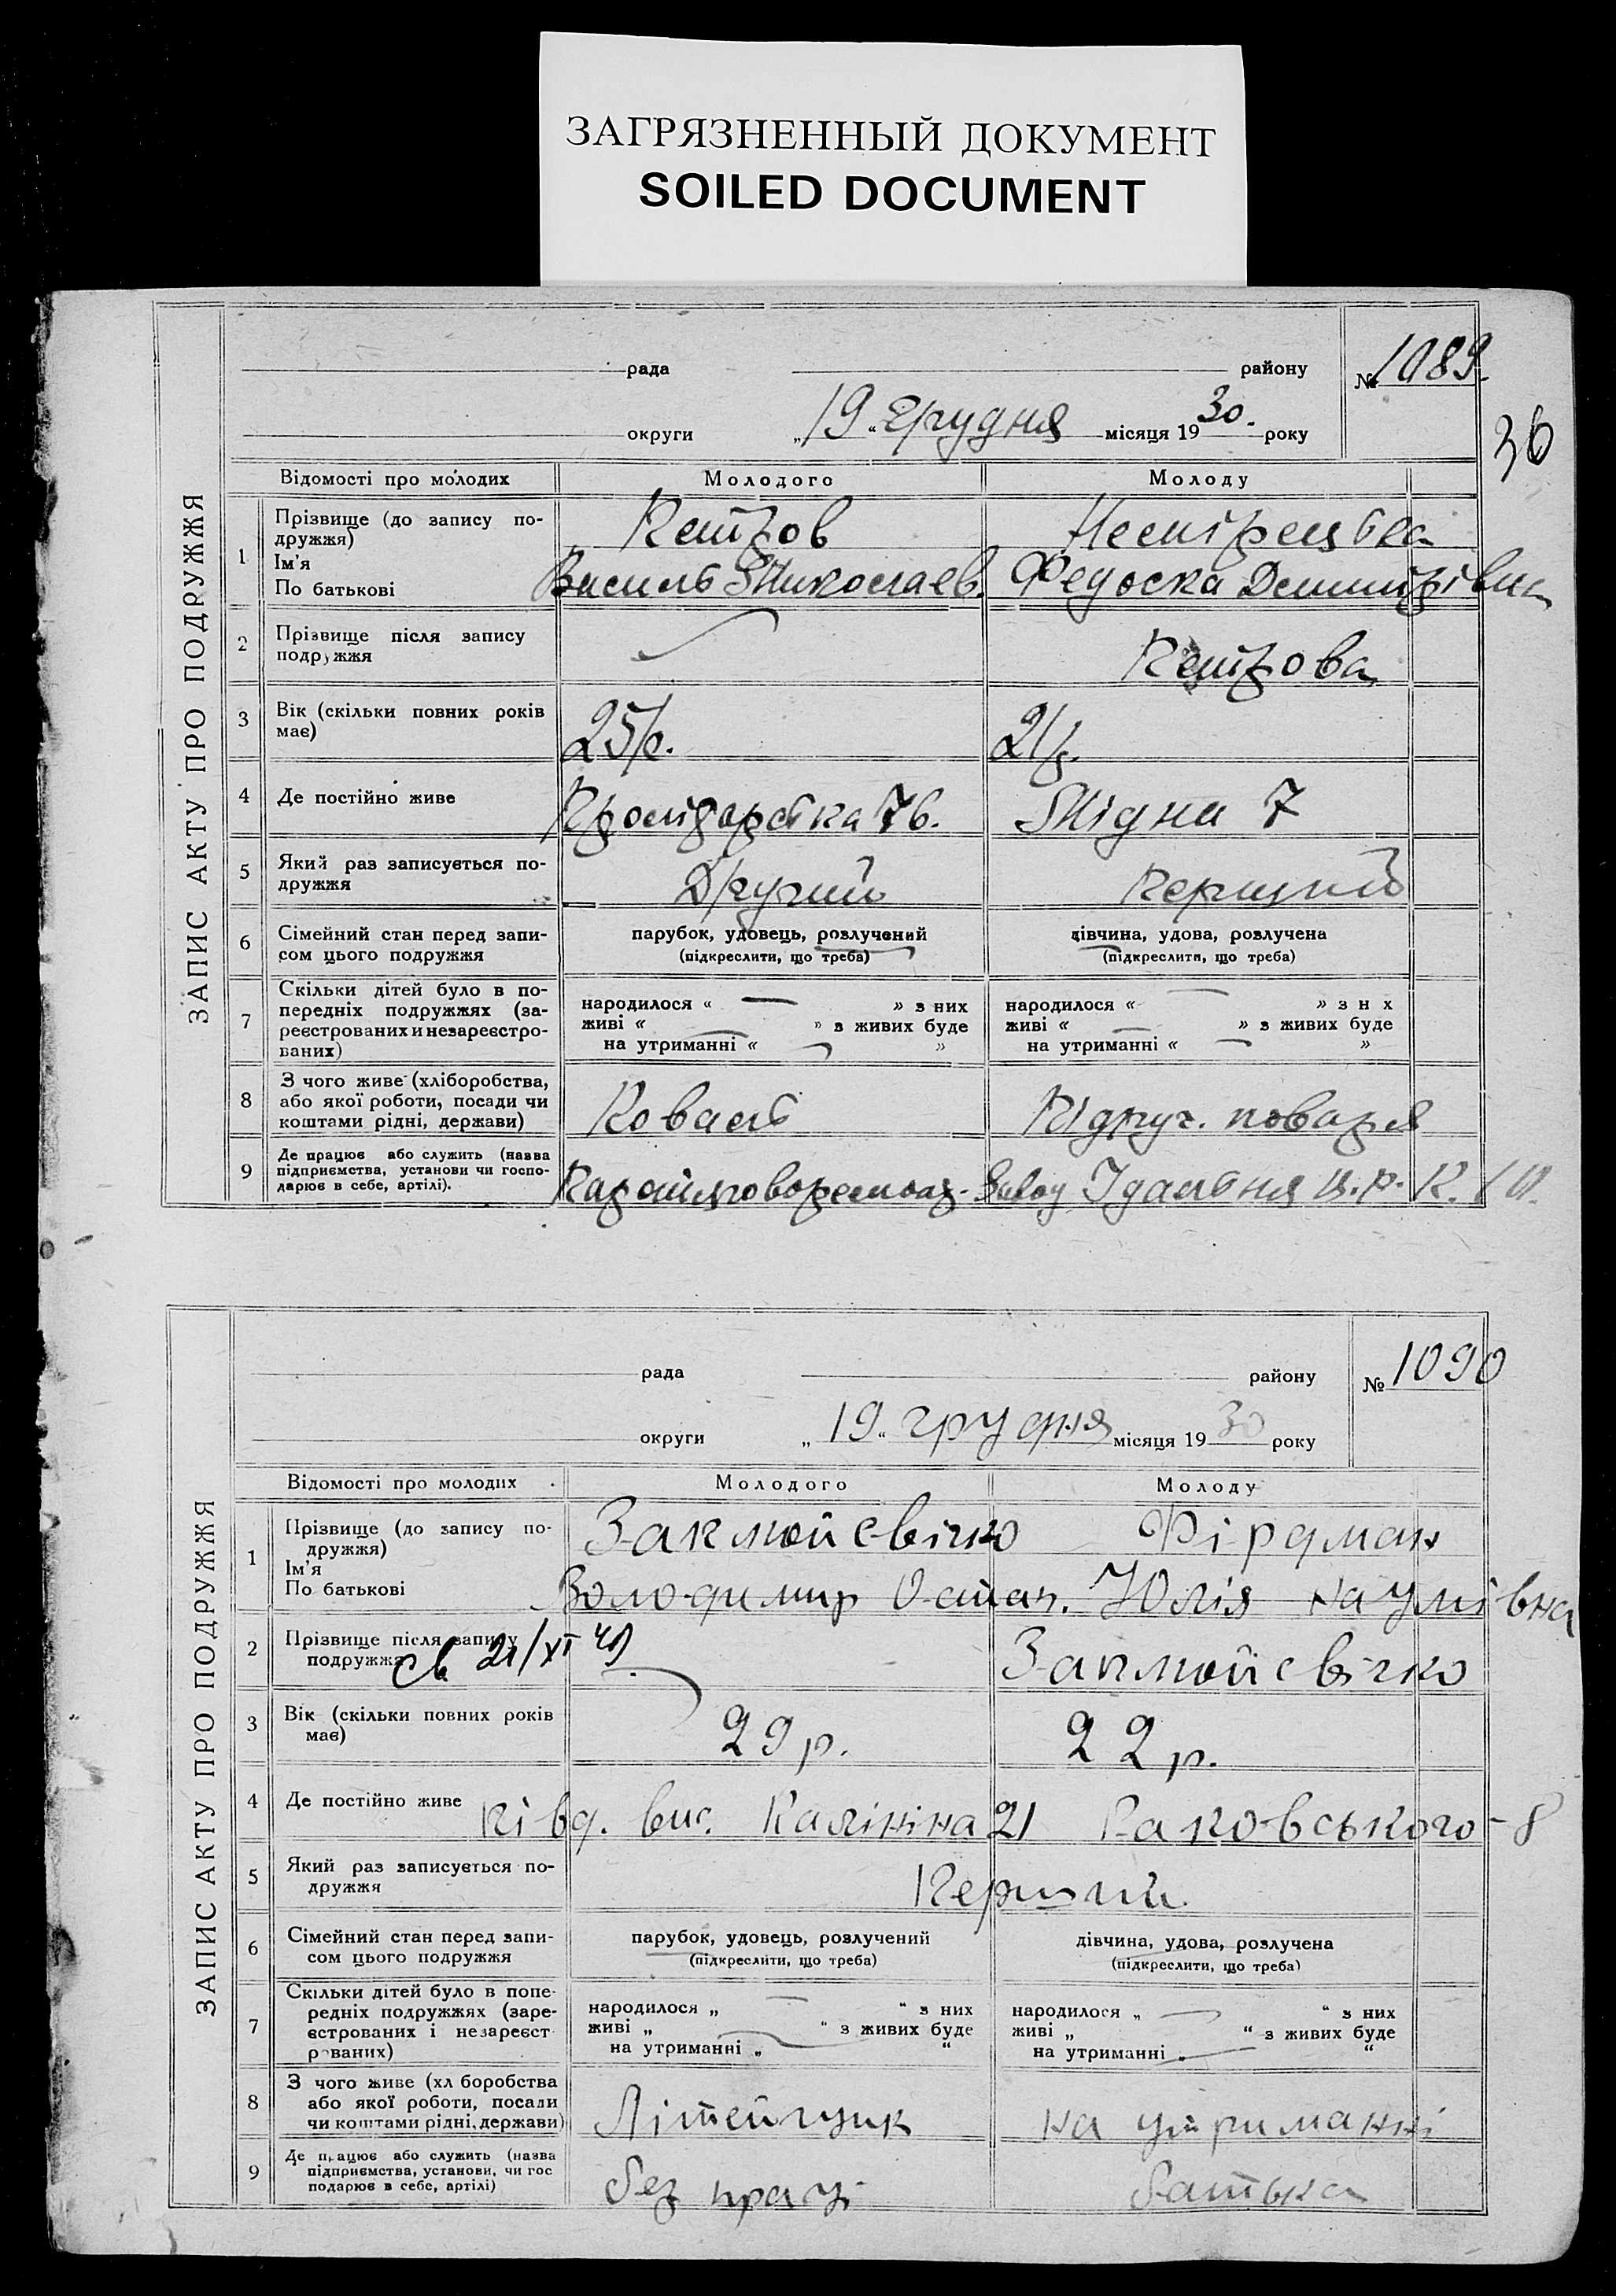 ЗАГРЯЗНЕННЫЙ ДОКУМЕНТ
SOILED DOCUMENT
ЗАПИС АКТУ ПРО ПОДРУЖЖЯ
рада району № 1089.
округи „19“ Грудня місяця 1930. року
36
Відомості про молодих Молодого Молоду
1 Прізвище (до запису по-
дружжя) Петров
Ім'я
По батькові Василь Николаев. Федоска Демитрівна
2 Прізвище після запису
подружжя Петрова
3 Вік (скільки повних років
має) 25 р. 21 р.
4 Де постійно живе 76. Східна 7
5 Який раз записується по-
дружжя Другий Перший
6 Сімейний стан перед запи-
сом цього подружжя парубок, удовець, розлучений дівчина, удова, розлучена
(підкреслити, що треба) (підкреслити, що треба)
7 Скільки дітей було в по-
передніх подружжях (за-
реєстрованих и незареєстро-
ваних)
народилося « — » з них народилося « — » з н х
живі « — » з живих буде живі « — » з живих буде
на утриманні « — » на утриманні « — »
8 З чого живе (хліборобства,
або якої роботи, посади чи
коштами рідні, держави) Коваль Підруч. поваря
9 Де працює або служить (назва
підприємства, установи чи госпо-
дарює в себе, артілі). завод Їдальня Ц.Р.К. 10.
ЗАПИС АКТУ ПРО ПОДРУЖЖЯ
рада району № 1090
округи „19“ грудня місяця 1930 року
Відомості про молодих Молодого Молоду
1 Прізвище (до запису по-
дружжя) Заклюйсвічко Фірдман
Ім'я
По батькові Володимир Остап. Юлія Наумівна
2 Прізвище після запису
подружжя св 21/XI 49 Заклюйсвічко
3 Вік (скільки повних років
має) 29 р. 22 р.
4 Де постійно живе Півд. вис. Калініна 21 Раковського-8
5 Який раз записується по-
дружжя Перший
6 Сімейний стан перед запи-
сом цього подружжя парубок, удовець, розлучений дівчина, удова, розлучена
(підкреслити, що треба) (підкреслити, що треба)
7 Скільки дітей було в попе-
редніх подружжях (заре-
єстрованих і незареєст
рованих)
народилося „ — “ з них народилося „ — “ з них
живі „ — “ з живих буде живі „ “ з живих буде
на утриманні „ “ на утриманні „ — “
8 З чого живе (хл боробства
або якої роботи, посади
чи коштами рідні, держави) Літейщик на утриманні
9 Де працює або служить (назва
підприємства, установи, чи гос
подарює в себе, артілі) без праці батька